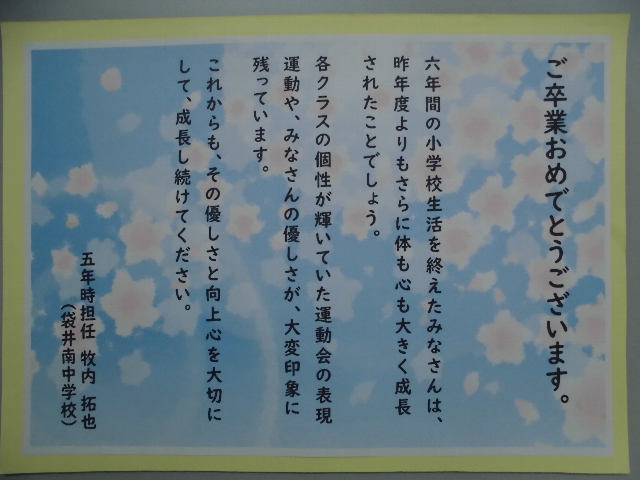 ご卒業おめでとうございます。
六年間の小学校生活を終えたみなさんは、
昨年度よりもさらに体も心も大きく成長
されたことでしょう。
各クラスの個性が輝いていた運動会の表現
運動や、みなさんの優しさが、大変印象に
残っています。
これからも、その優しさと向上心を大切に
して、成長し続けてください。
五年時担任 牧内 拓也
（袋井南中学校）